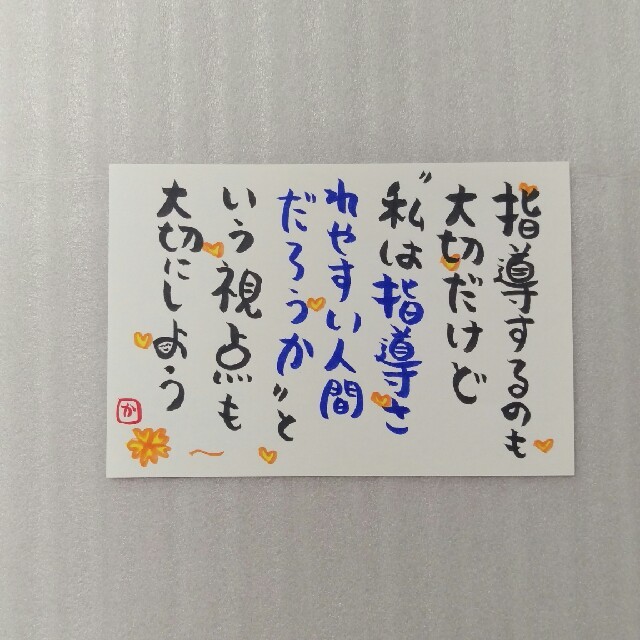 指導するのも
大切だけど
"私は指導さ
れやすい人間
だろうか"と
いう視点も
大切にしよう
か